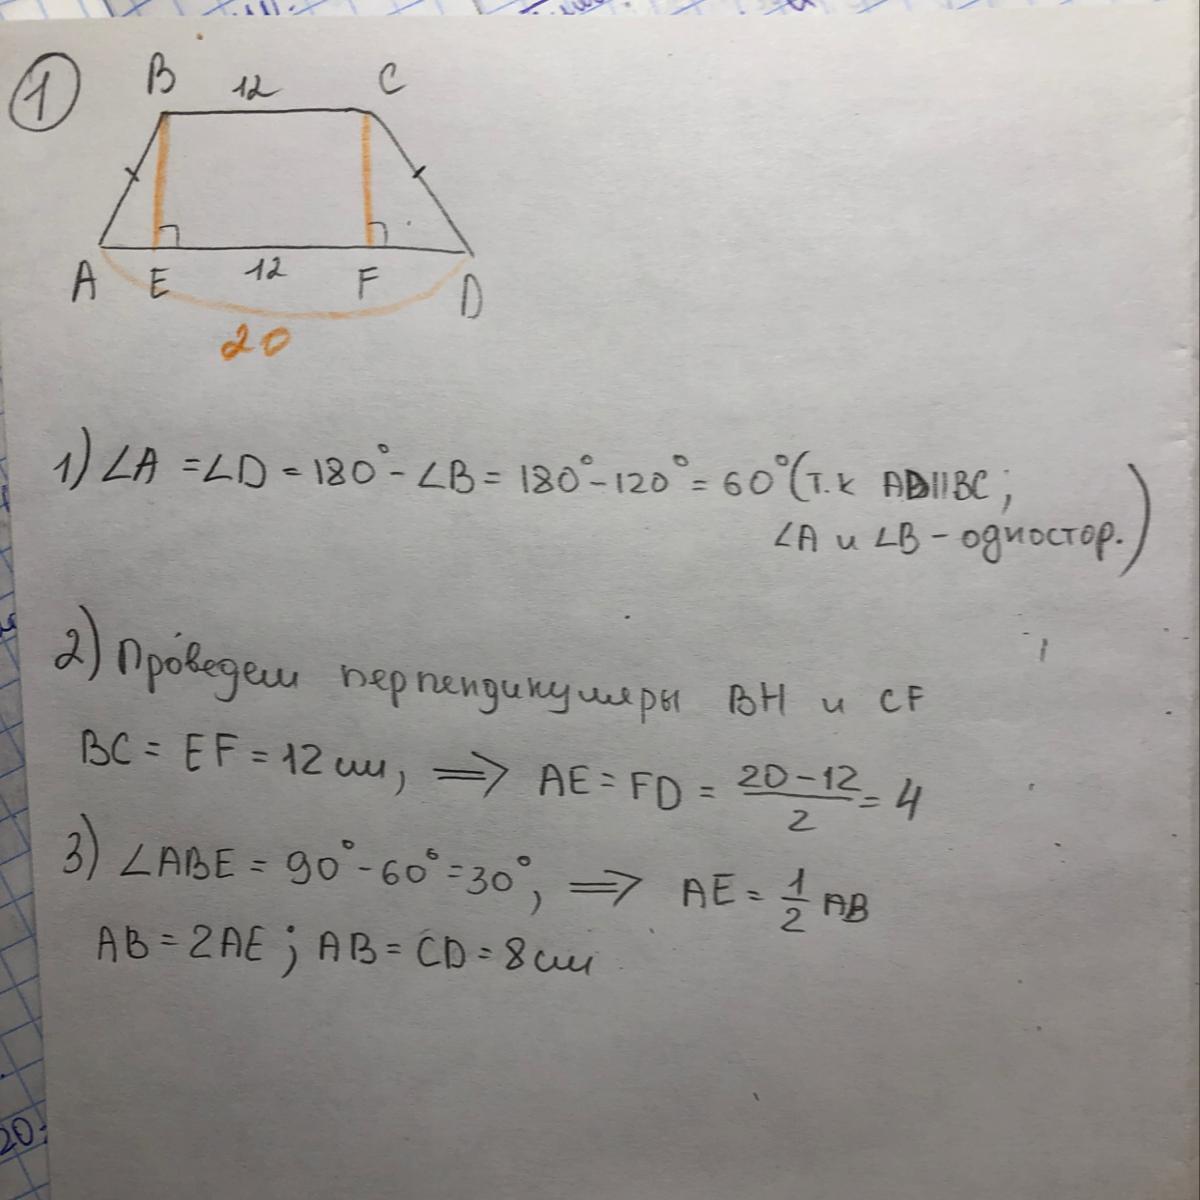 1
B 12 C
A E 12 F D
20
1) ∠A = ∠D = 180° - ∠B = 180° - 120° = 60° (т.к AD||BC;
∠A и ∠B - одностор.)
2) Проведем перпендикуляры BH и CF
BC = EF = 12 см, ⟹ AE = FD = (20-12)/2 = 4
3) ∠ABE = 90° - 60° = 30°, ⟹ AE = 1/2 AB
AB = 2AE; AB = CD = 8 см
20